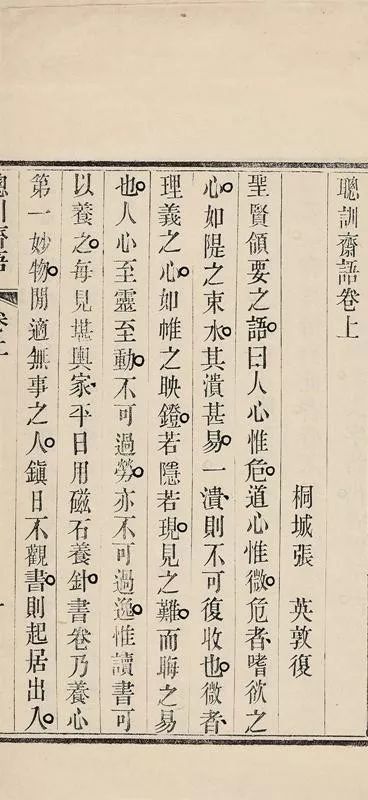 聰訓齋語卷上
桐城張　英敦復
聖賢領要之語曰人心惟危道心惟微危者嗜欲之
心如隄之束水其潰甚易一潰則不可復收也微者
理義之心如帷之映鐙若隱若現見之難而晦之易
也人心至靈至動不可過勞亦不可過逸惟讀書可
以養之每見堪輿家平日用磁石養針書卷乃養心
第一妙物閒適無事之人鎭日不觀書則起居出入
聰訓齋語
卷上
一